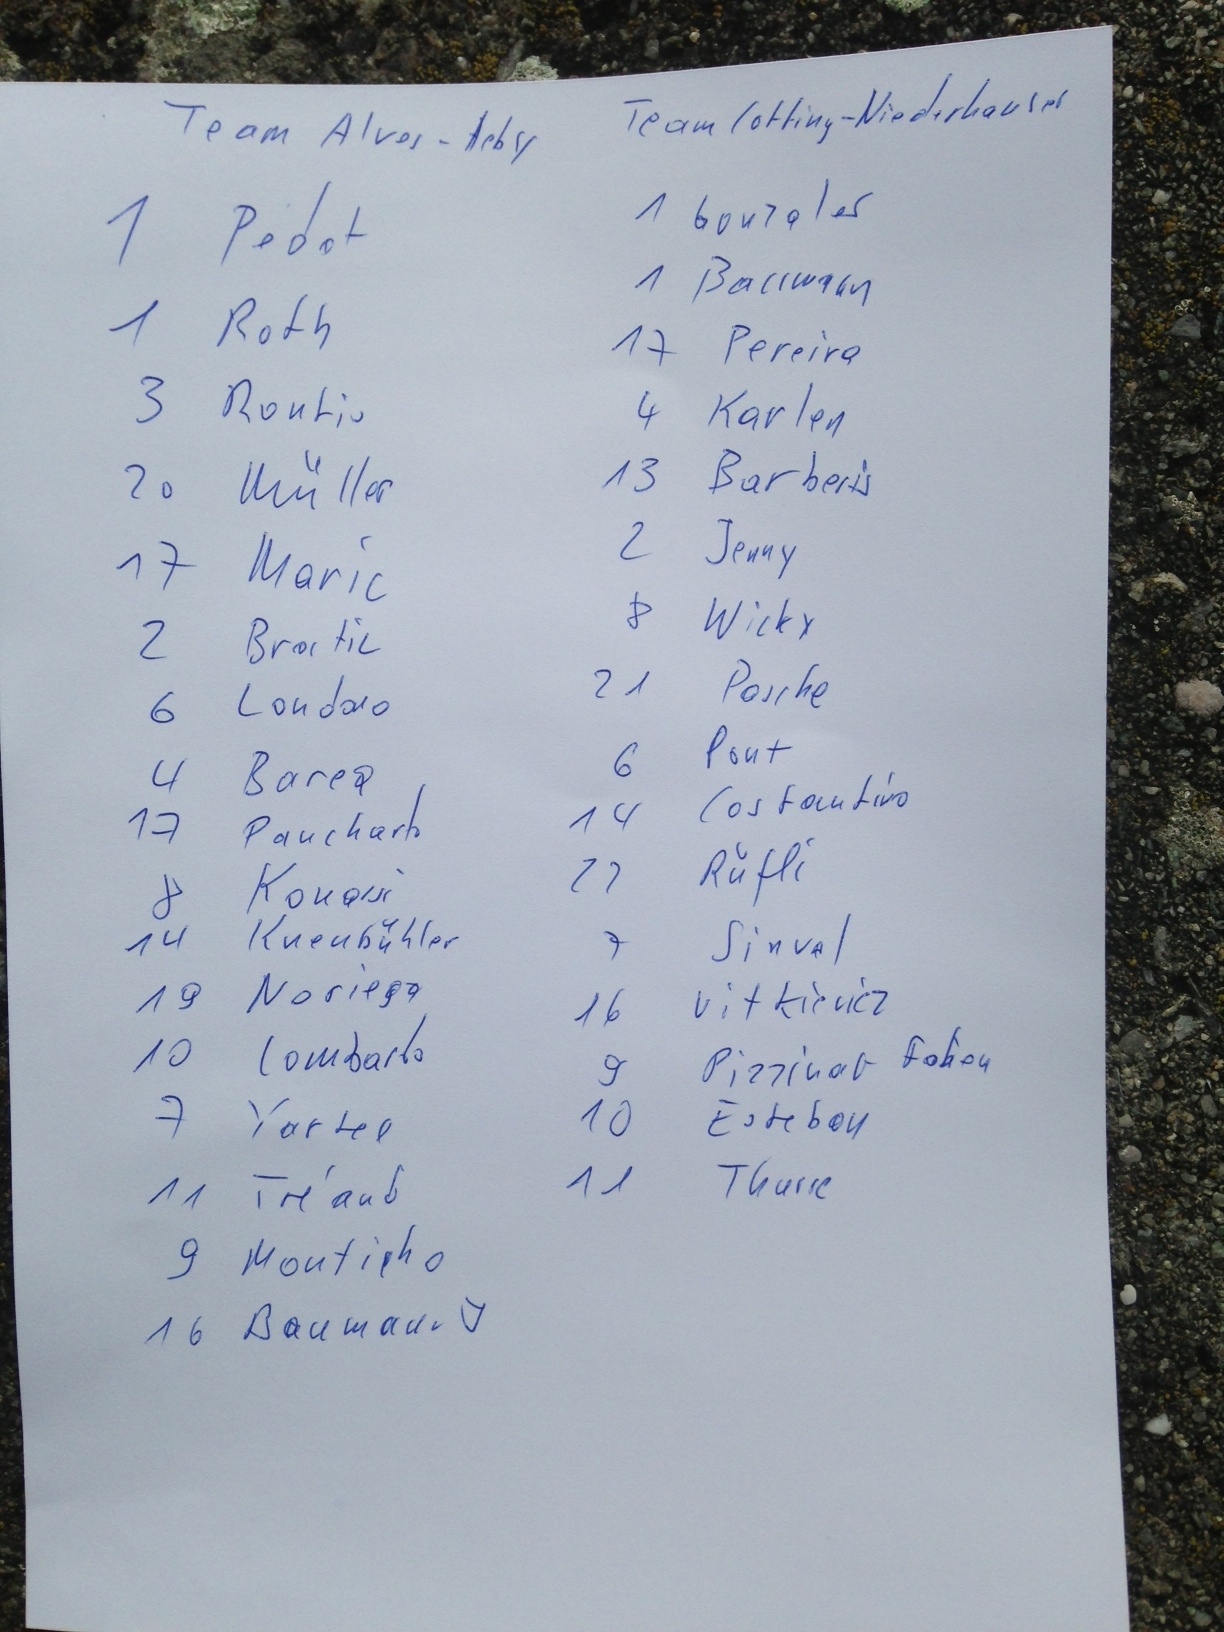 Team Alves - Aeby
1 Pedat
1 Roth
3 Rontin
20 Müller
17 Maric
2 Bratic
6 Londono
4 Barea
17 Panchard
8 Konassi
14 Knenbühler
19 Noriega
10 Lombardo
7 Yartey
11 Tréand
9 Montinho
16 Baumann J
Team Cotting-Niederhauser
1 Gonzales
1 Bassmann
17 Pereira
4 Karlen
13 Barberis
2 Jenny
8 Wicky
21 Pasche
6 Pont
14 Costantino
22 Rüfli
7 Sinval
16 Vitkieviez
9 Pizzinat Fabien
10 Esteban
11 Thurre